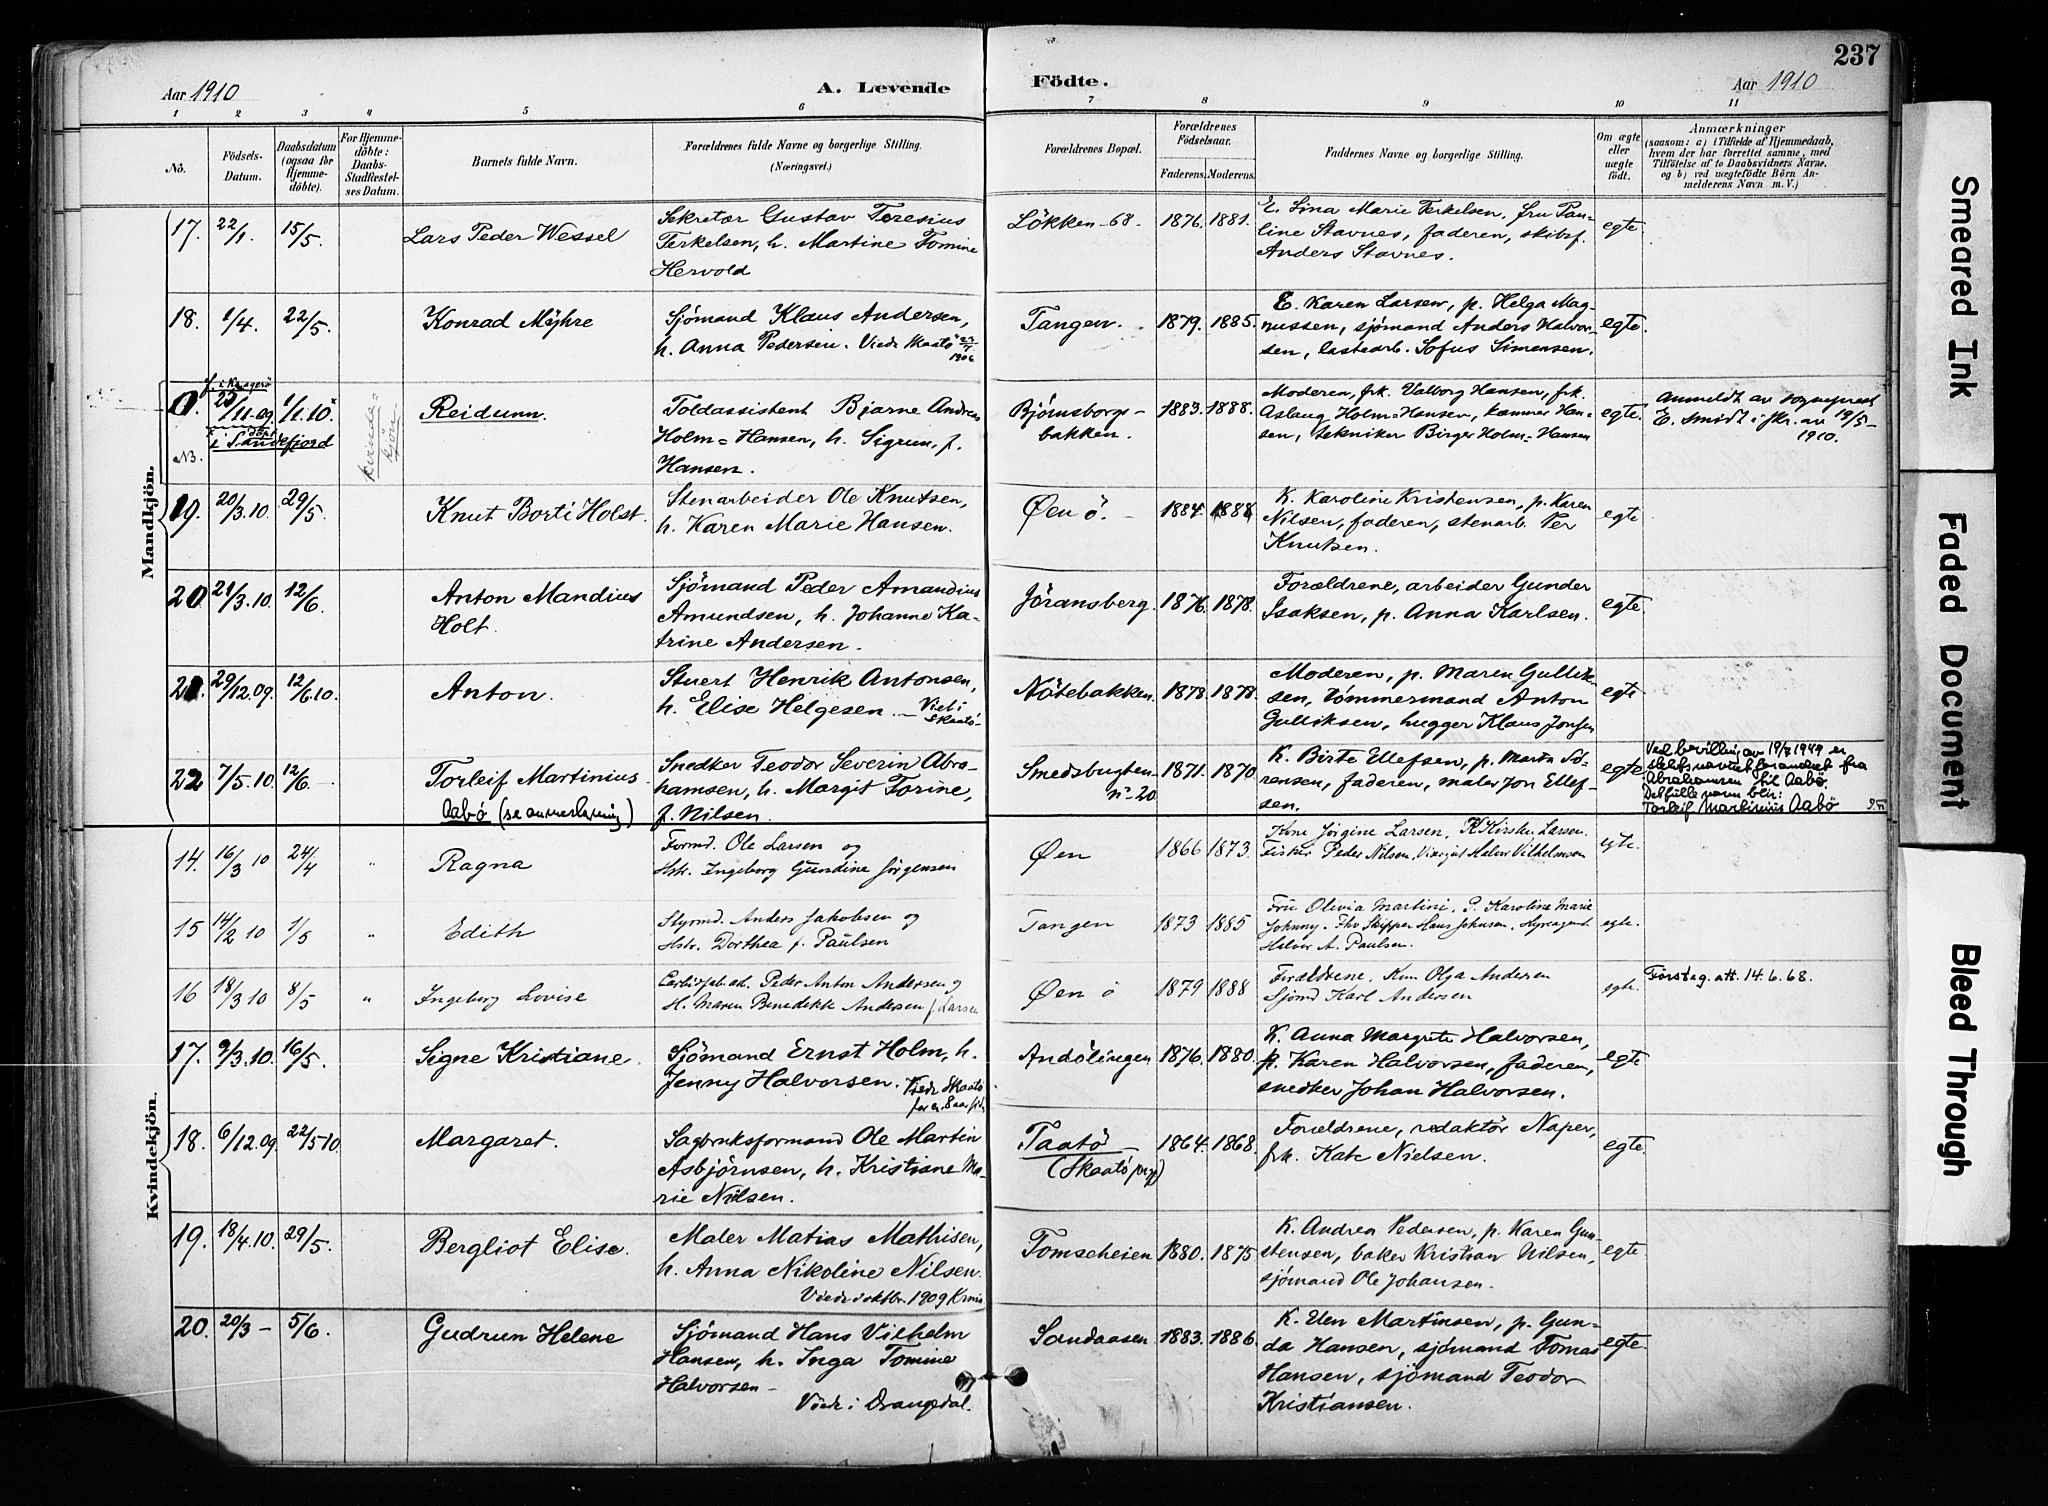 237
Aar 1910
A. Levende
Födte.
Aar 1910
1 2 3 4 5 6 7 8 9 10 11
No.
Födsels-
Datum.
Daabsdatum
(ogsaa för
Hjemme-
döbte).
For Hjemme-
döbte:
Daabs-
Stadfæstel-
ses Datum.
Barnets fulde Navn.
Forældrenes fulde Navne og borgerlige Stilling.
(Næringsvei.)
Forældrenes Bopæl.
Forældrenes
Födselsaar.
Faderens. Moderens.
Faddernes Navne og borgerlige Stilling.
Om ægte
eller
uægte
födt.
Anmærkninger
(saasom: a) i Tilfælde af Hjemmedaab,
hvem der har forrettet samme, med
Tilföielse af to Daabsvidners Navne,
og b) ved uægtefödte Börn An-
melderens Navn m. V.)
Mandkjön.
17. 22/1. 15/5. Lars Peder Wessel
Sekretær Gustav Teresius
Terkelsen, h. Martine Tomine
Hervold
Løkken 68. 1876. 1881.
E. Lina Marie Terkelsen, fru Pau-
line Stavnes, faderen, skibsf.
Anders Stavnes.
egte
18. 1/4. 22/5. Konrad Myhre
Sjömand Klaus Andersen,
h. Anna Pedersen. Viede Skaatö
1906
Tangen. 1879. 1885.
E. Karen Larsen, p. Helga Mag-
nussen, sjömand Anders Halvor-
sen, lastearb. Sofus Simensen.
egte.
f. i Kragerö
/11-09 1/1.10. Reidunn.
döpt
i Sandefjord
NB.
Kvinde-
kjön
Toldassistent Bjarne Andreas
Holm-Hansen, h. Sigrun, f.
Hansen.
Björnsborgs-
bakken. 1883. 1888.
Moderen, frk. Valborg Hansen, frk.
Aslaug Holm-Hansen, kemner Han-
sen, tekniker Birger Holm-Hansen
egte.
Anmeldt av sogneprest
E. Smidt i skr. av 19/5-
1910.
19. 20/3.10. 29/5. Knut Borti Holst.
Stenarbeider Ole Knutsen,
h. Karen Marie Hansen.
Øen ö. 1884. 1888
K. Karoline Kristensen, p. Karen
Nilsen, faderen, stenarb. Per
Knutsen.
egte
20 21/3.10. 12/6. Anton Mandius
Holt.
Sjömand Peder Amandius
Amundsen, h. Johanne Ka-
trine Andersen.
Jöransberg. 1876. 1878.
Forældrene, arbeider Gunder
Isaksen, p. Anna Karlsen.
egte.
21. 29/12.09. 12/6.10. Anton.
Stuert Henrik Antonsen,
h. Elise Helgesen. - Viet i
Skaatö.
Nötebakken. 1878. 1878.
Moderen, p. Maren Gullik-
sen, tömmermand Anton
Gulliksen, hugger Klaus Jonsen
egte
22 7/5.10. 12/6. Torleif Martinius.
Aabö (se anmerkning)
Snedker Teodor Severin Abra-
hamsen, h. Margit Torine,
f. Nilsen.
Smedsbugten
nº 20 1871. 1870.
K. Birte Ellefsen, p. Marta Sö-
rensen, faderen, maler Jon Ellef-
sen.
egte
Ved bevilling av 19/7 1949 er
slektsnavnet forandret fra
Abrahamsen til Aabö.
Det fulle navn blir:
Torleif Martinius Aabö
Kvindekjön.
14. 16/3 10 24/4 " Ragna
Formd. Ole Larsen og
Hstr. Ingeborg Gundine Jörgensen
Øen 1866 1873.
Kone Jörgine Larsen, P. Kirsten Larsen.
Fisker Peder Nilsen, Halvor Vilhelmsen
egte.
15 14/2 10 1/5 " Edith
Styrmd. Anders Jakobsen og
Hstr. Dorthea f. Paulsen
Tangen 1873 1885
Fru Olivia Martini, P. Karoline Marie
Johnny. Fhv Skipper Hans Johnsen.
Halvor A. Paulsen.
egte.
16 18/3 10 8/5 " Ingeborg Lovise
Peder Anton Andersen og
H. Maren Benedikte Andersen f. Larsen
Øen ö 1879 1888
Forældrene. Kone Olga Andersen
Sjömd Karl Andersen
egte.
Förstag. att. 14.6.68.
17. 9/3.10. 16/5. Signe Kristiane.
Sjömand Ernst Holm, h.
Jenny Halvorsen. Viede Skaatö
for c. 8 aar siden
Andölingen 1876. 1880.
K. Anna Margrete Halvorsen,
p. Karen Halvorsen, faderen,
snedker Johan Halvorsen.
egte
18. 6/12.09. 22/5 10. Margaret.
Sagbruksformand Ole Martin
Asbjörnsen, h. Kristiane Ma-
rie Nilsen.
Taatö
(Skaatö prgj) 1864. 1868.
Forældrene, redaktör Naper,
frk. Kate Nielsen.
egte.
19. 18/4.10. 29/5. Bergliot Elise.
Maler Matias Mathisen,
h. Anna Nikoline Nilsen.
Viede i oktbr. 1909 Krania
Tomseheien 1880. 1875
K. Andrea Pedersen, p. Karen Gun-
stensen, baker Kristian Nilsen,
sjömand Ole Johansen.
egte
20. 20/3 - 5/6. Gudrun Helene
Sjömand Hans Vilhelm
Hansen, h. Inga Tomine
Halvorsen -
Viede i Drangedal.
Sandaasen 1883. 1886.
K. Elen Martinsen, p. Gun-
da Hansen, sjömand Tomas
Hansen, sjömand Teodor
Kristiansen.
egte.
Smeared Ink
Faded Document
Bleed Through